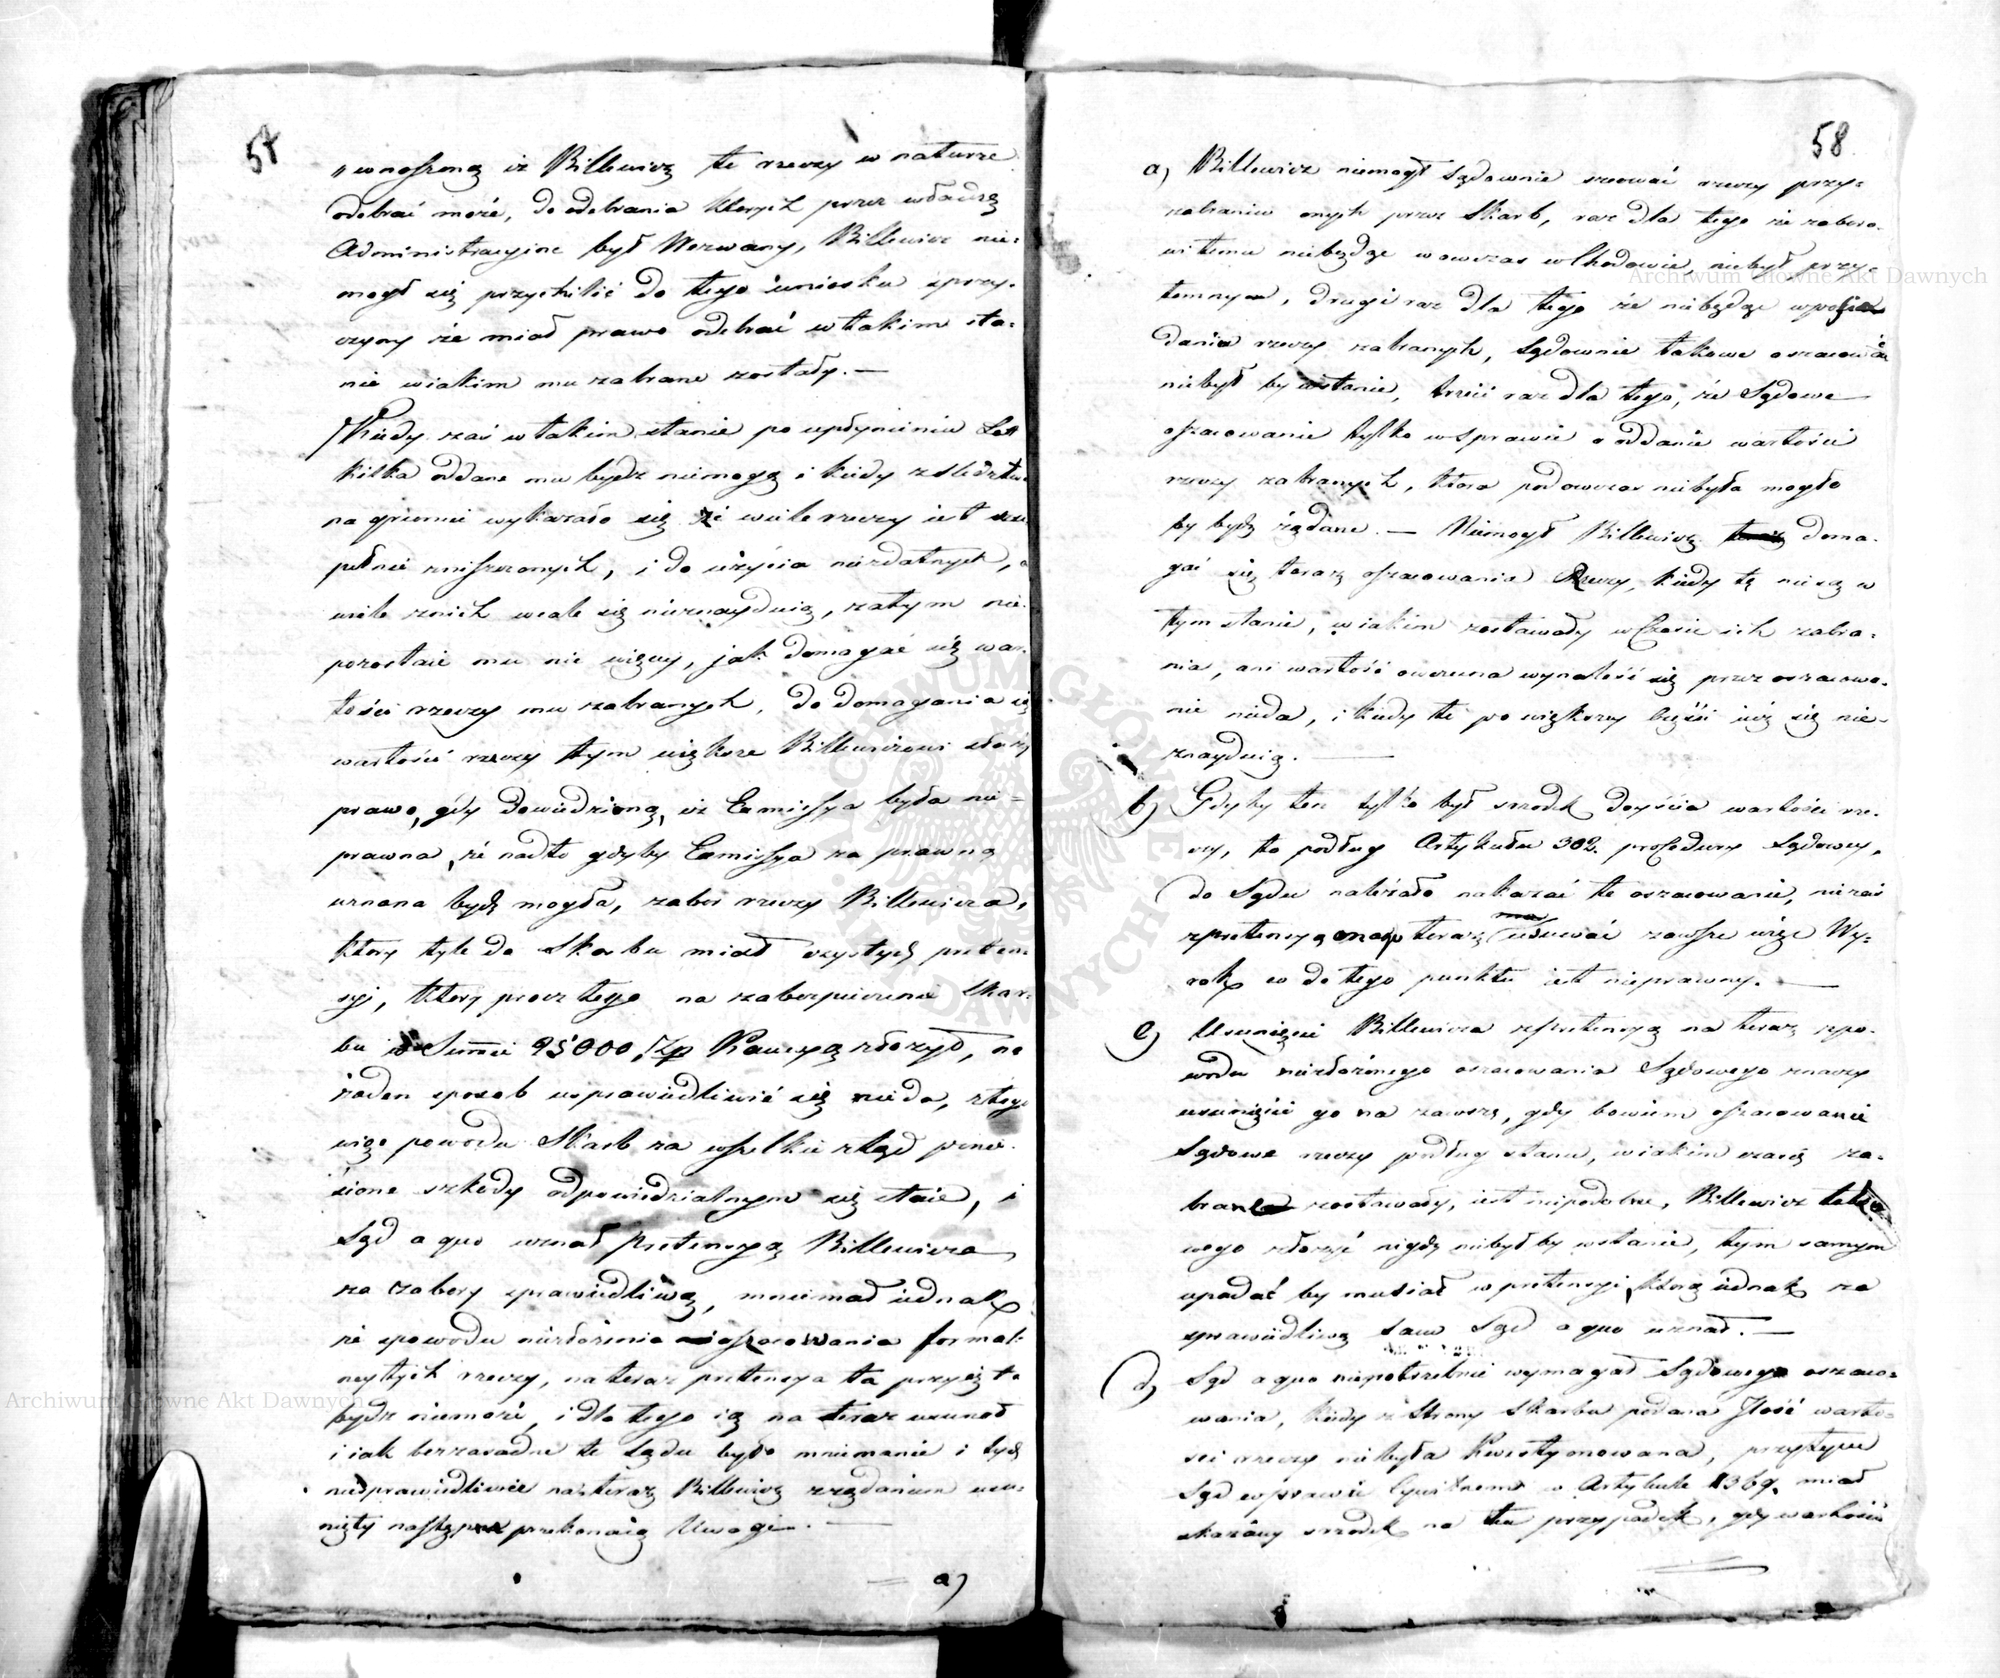 57
„wnoszoną iż Billewicz te rzeczy w naturze
odebrać może, do odebrania których przez władzę
Administracyjne był Wezwany, Billewicz nie=
mógł się przychilić do tego wniosku z przy=
czyny że miał prawo odebrać w takim sta=
nie w iakim mu zabrane zostały. —
Kiedy zaś w takim stanie po upłynieniu Lat
kilka oddane mu bydz niemogą i kiedy z śledztwa
na gruncie wykazało się że wiele rzeczy iest zu
pełnie zniszczonych, i do użycia niezdatnych, a
wiele z nich wcale się nieznayduią, zatym nie
pozostaie mu nic więcey, jak domagać się war=
tości rzeczy mu zabranych, do domagania się
wartości rzeczy tym większe Billewiczowi służy
prawo, gdy dowiedzioną, iż Exmissya była nie=
prawna, że nadto gdyby Exmissya za prawną
uznana bydź mogła, zabor rzeczy Billewicza,
ktory tyle do Skarbu miał czystych preten=
syi, ktory procz tego na zabezpieczenie Skar=
bu w Summie 25000 Złp Kaucyą złożył, na
żaden sposob usprawiedliwić się nieda, z tego
więc powodu Skarb za wszelkie ztąd ponie=
sione szkody odpowiedzialnym się staie, i
Sąd a quo uznał pretensyą Billewicza
za zabory sprawiedliwą, mniemał iednak
że z powodu niezłożenia oszacowania formal=
ney tych rzeczy, na teraz pretensya ta przyiętą
bydz niemoże, i dla tego ią na teraz usunął
i iak bezzasadne te Sądu było mniemanie i był
niesprawiedliwie na teraz Billewicz z żądaniem usu=
nięty następne przekonaią Uwagi. —
a)
58
a) Billewicz niemogł Sądownie szacować rzeczy przy=
zabraniu onych przez Skarb, raz dla tego że zaboro=
wi temu niebędąc wowczas w Chodowie, niebył przy=
tomnym, drugi raz dla tego że niebędąc w posia
daniu rzeczy zabranych, Sądownie takowe oszacować
niebył by w stanie, trzeci raz dla tego, że Sądowe
oszacowanie tylko w sprawie o oddanie wartości
rzeczy zabranych, ktora podowczas niebyła mogło
by bydź żądane. — Niemogł Billewicz doma=
gać się teraz oszacowania Rzeczy, kiedy te nie są w
tym stanie, w iakim zostawały w Czasie ich zabra=
nia, ani wartość owczesna wynaleść się przez oszacowa=
nie nieda, i kiedy te po większey części iuż się nie=
znayduią. —
b) Gdyby ten tylko był srzodek doyścia wartości rze=
czy, to podług Artykułu 302. procedury Sądowey,
do Sądu należało nakazać te oszacowanie, nie zaś
z pretensyą onego teraz usuwać zawsze więc Wy=
rok co do tego punktu iest nieprawny. —
c) Usunięcie Billewicza z pretensyą na teraz z po=
wodu niezłożonego oszacowania Sądowego znaczy
usunięcie go na zawsze, gdy bowiem oszacowanie
Sądowe rzeczy podług stanu, w iakim czasie za=
brania zostawały, iest niepodobne, Billewicz tako
wego złożyć nigdy niebyłby w stanie, tym samym
upadać by musiał w pretensyi, ktorą iednak za
sprawiedliwą sam Sąd a quo uznał. —
d) Sąd a quo niepotrzebnie wymagał Sądowego oszaco=
wania, kiedy z Strony Skarbu podana Ilość warto=
ści rzeczy niebyła kwestyonowana, przytym
Sąd w prawie Cywilnem w Artykule 1369. miał
skazany srzodek na ten przypadek, gdy wartość